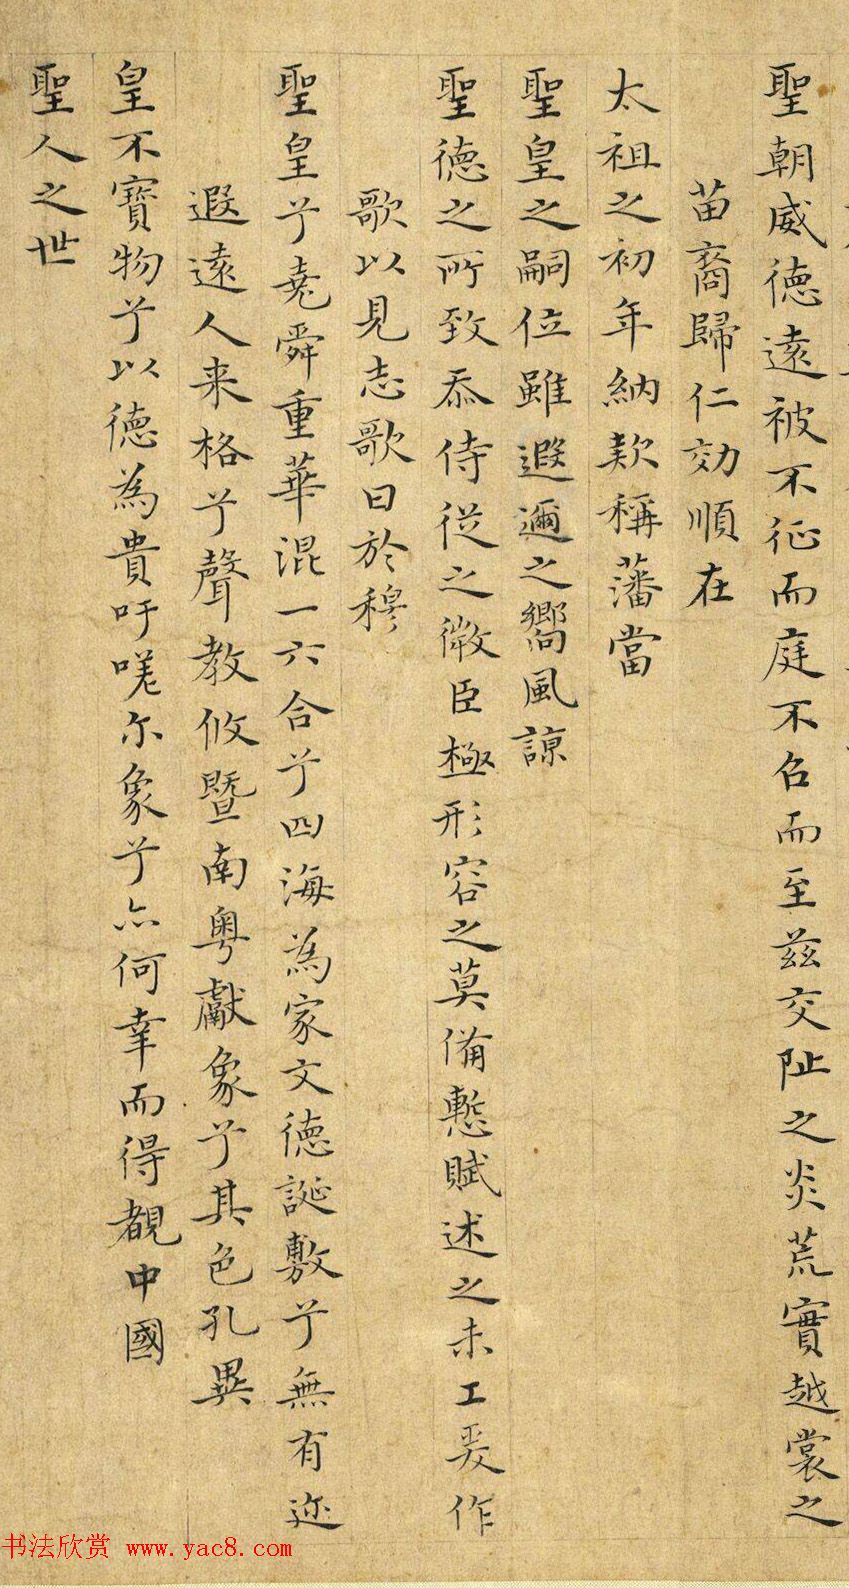 聖朝威徳遠被不征而庭不召而至茲交阯之炎荒實越裳之
苗裔歸仁効順在
太祖之初年納款稱藩當
聖皇之嗣位雖遐邇之嚮風諒
聖徳之所致忝侍從之微臣極形容之莫備慙賦述之未工爰作
歌以見志歌曰於穆
聖皇兮堯舜重華混一六合兮四海為家文徳誕敷兮無有迩
遐遠人来格兮聲教攸暨南粵獻象兮其色孔異
皇不寶物兮以徳為貴吁嗟尔象兮亦何幸而得覩中國
聖人之世
书法欣赏 www.yac8.com